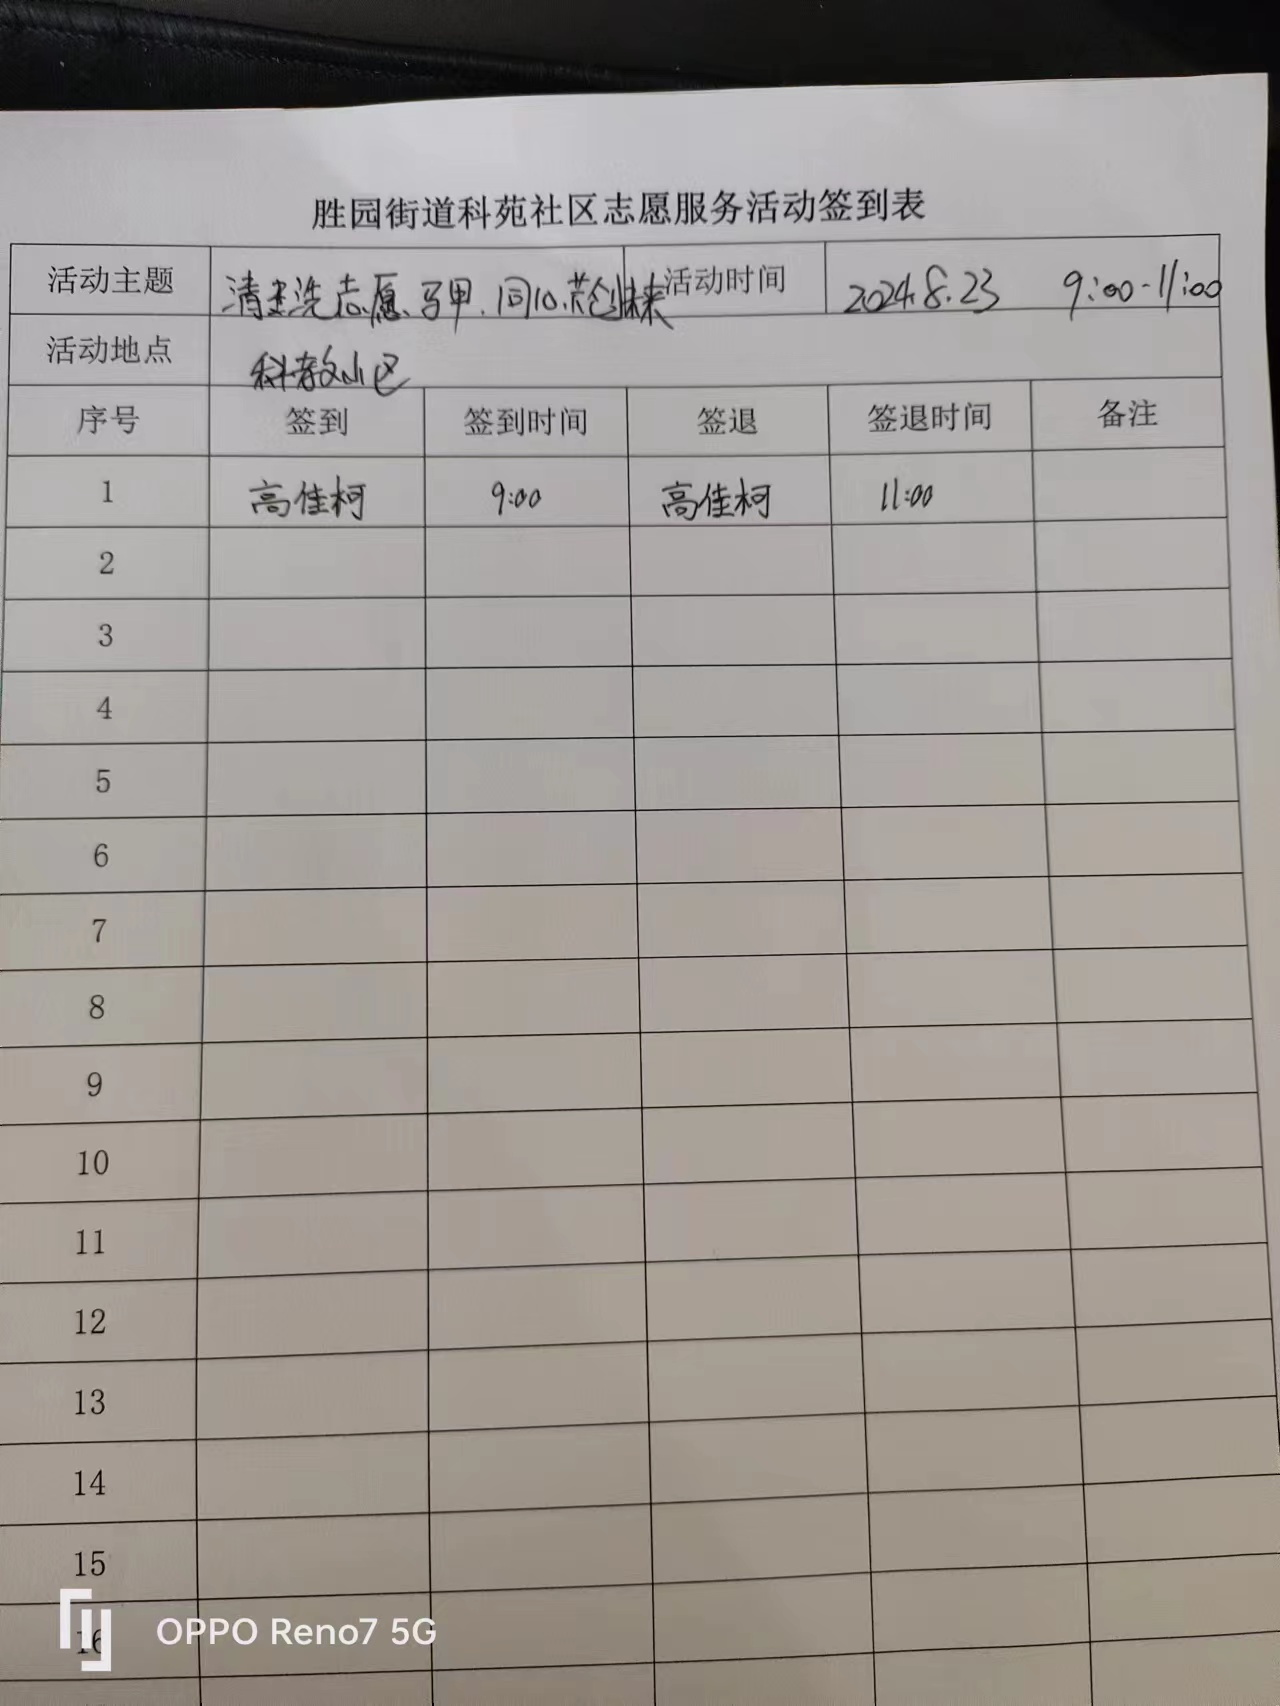 胜园街道科苑社区志愿服务活动签到表
活动主题 清洗志愿马甲.同心共创未来 活动时间 2024.8.23 9:00-11:00
活动地点 科教小区
序号 签到 签到时间 签退 签退时间 备注
1 高佳柯 9:00 高佳柯 11:00
2
3
4
5
6
7
8
9
10
11
12
13
14
15
16
OPPO Reno7 5G